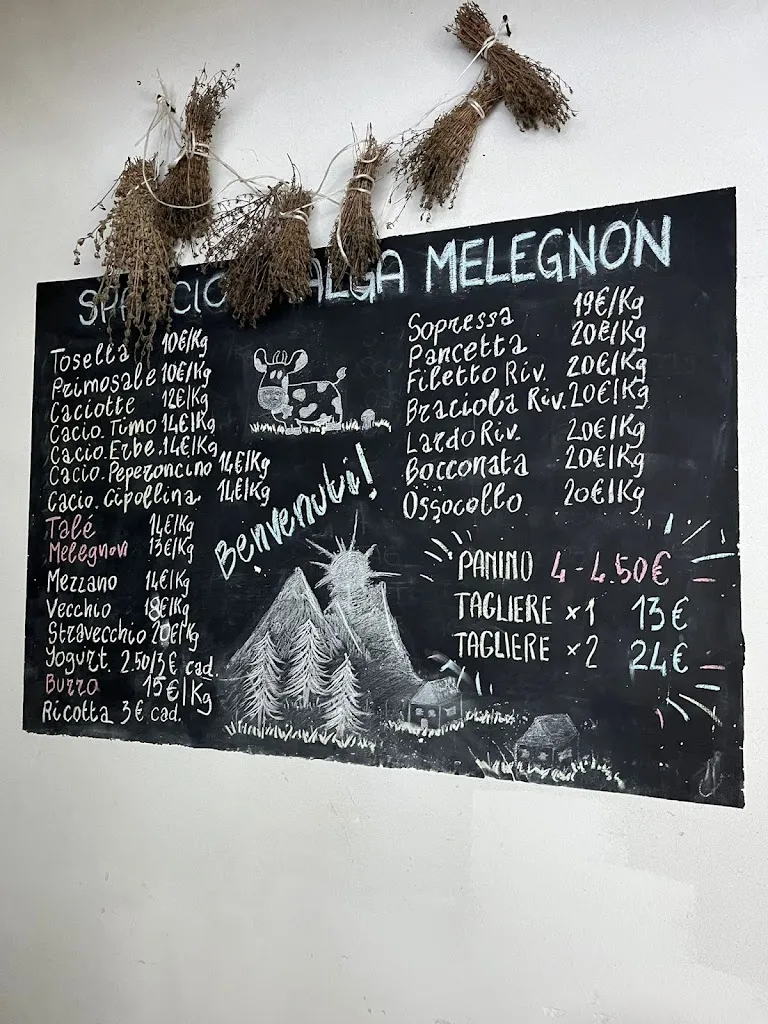 MALGA MELEGNON
Tosella 10€/Kg
Primosale 10€/Kg
Caciotte 12€/Kg
Cacio. Timo 14€/Kg
Cacio. Erbe. 14€/Kg
Cacio. Peperoncino 14€/Kg
Cacio. Cipollina 14€/Kg
Talé 14€/Kg
Melegnon 13€/Kg
Mezzano 14€/Kg
Vecchio 18€/Kg
Stravecchio 20€/Kg
Yogurt. 2.50/3€ cad.
Burro 15€/Kg
Ricotta 3€ cad.
Benvenuti!
Sopressa 19€/Kg
Pancetta 20€/Kg
Filetto Riv. 20€/Kg
Braciola Riv. 20€/Kg
Lardo Riv. 20€/Kg
Bocconata 20€/Kg
Ossocollo 20€/Kg
PANINO 4-4.50€
TAGLIERE x1 13€
TAGLIERE x2 24€